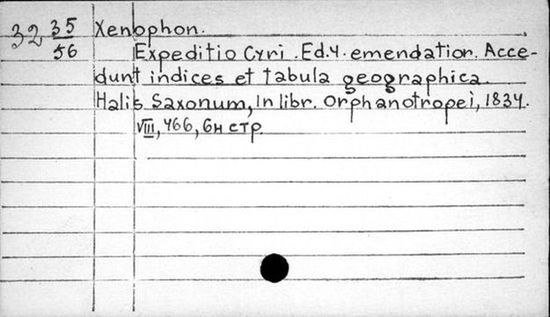 32 35/56 Xenophon.
Expeditio Cyri. Ed. 4. emendatior. Acce-
dunt indices et tabula geographica.
Halis Saxonum, in libr. Orphanotropei, 1834.
VIII, 466, 6н стр.